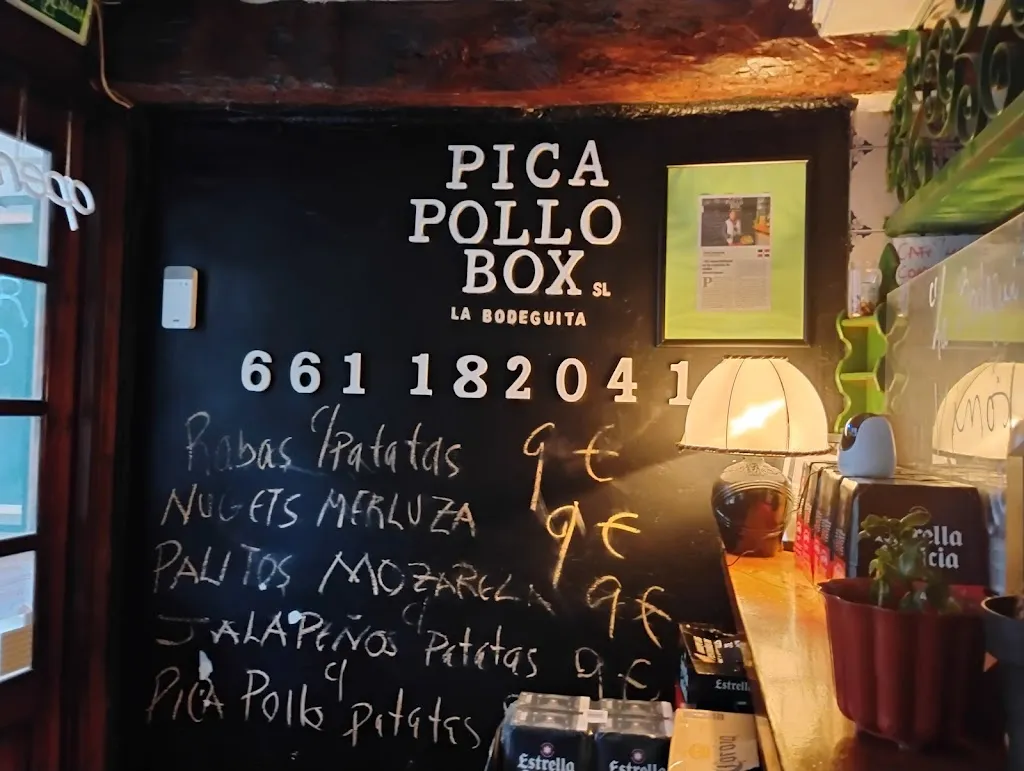 open
PICA
POLLO
BOX SL
LA BODEGUITA
661 182041
Rabas c/Patatas 9 €
NUGETS MERLUZA 9 €
PALITOS MOZARELA 9 €
JALAPEÑOS c/ Patatas 9 €
PICA Pollo c/ patatas
Estrella
Estrella
Estrella
Estrella
Corona